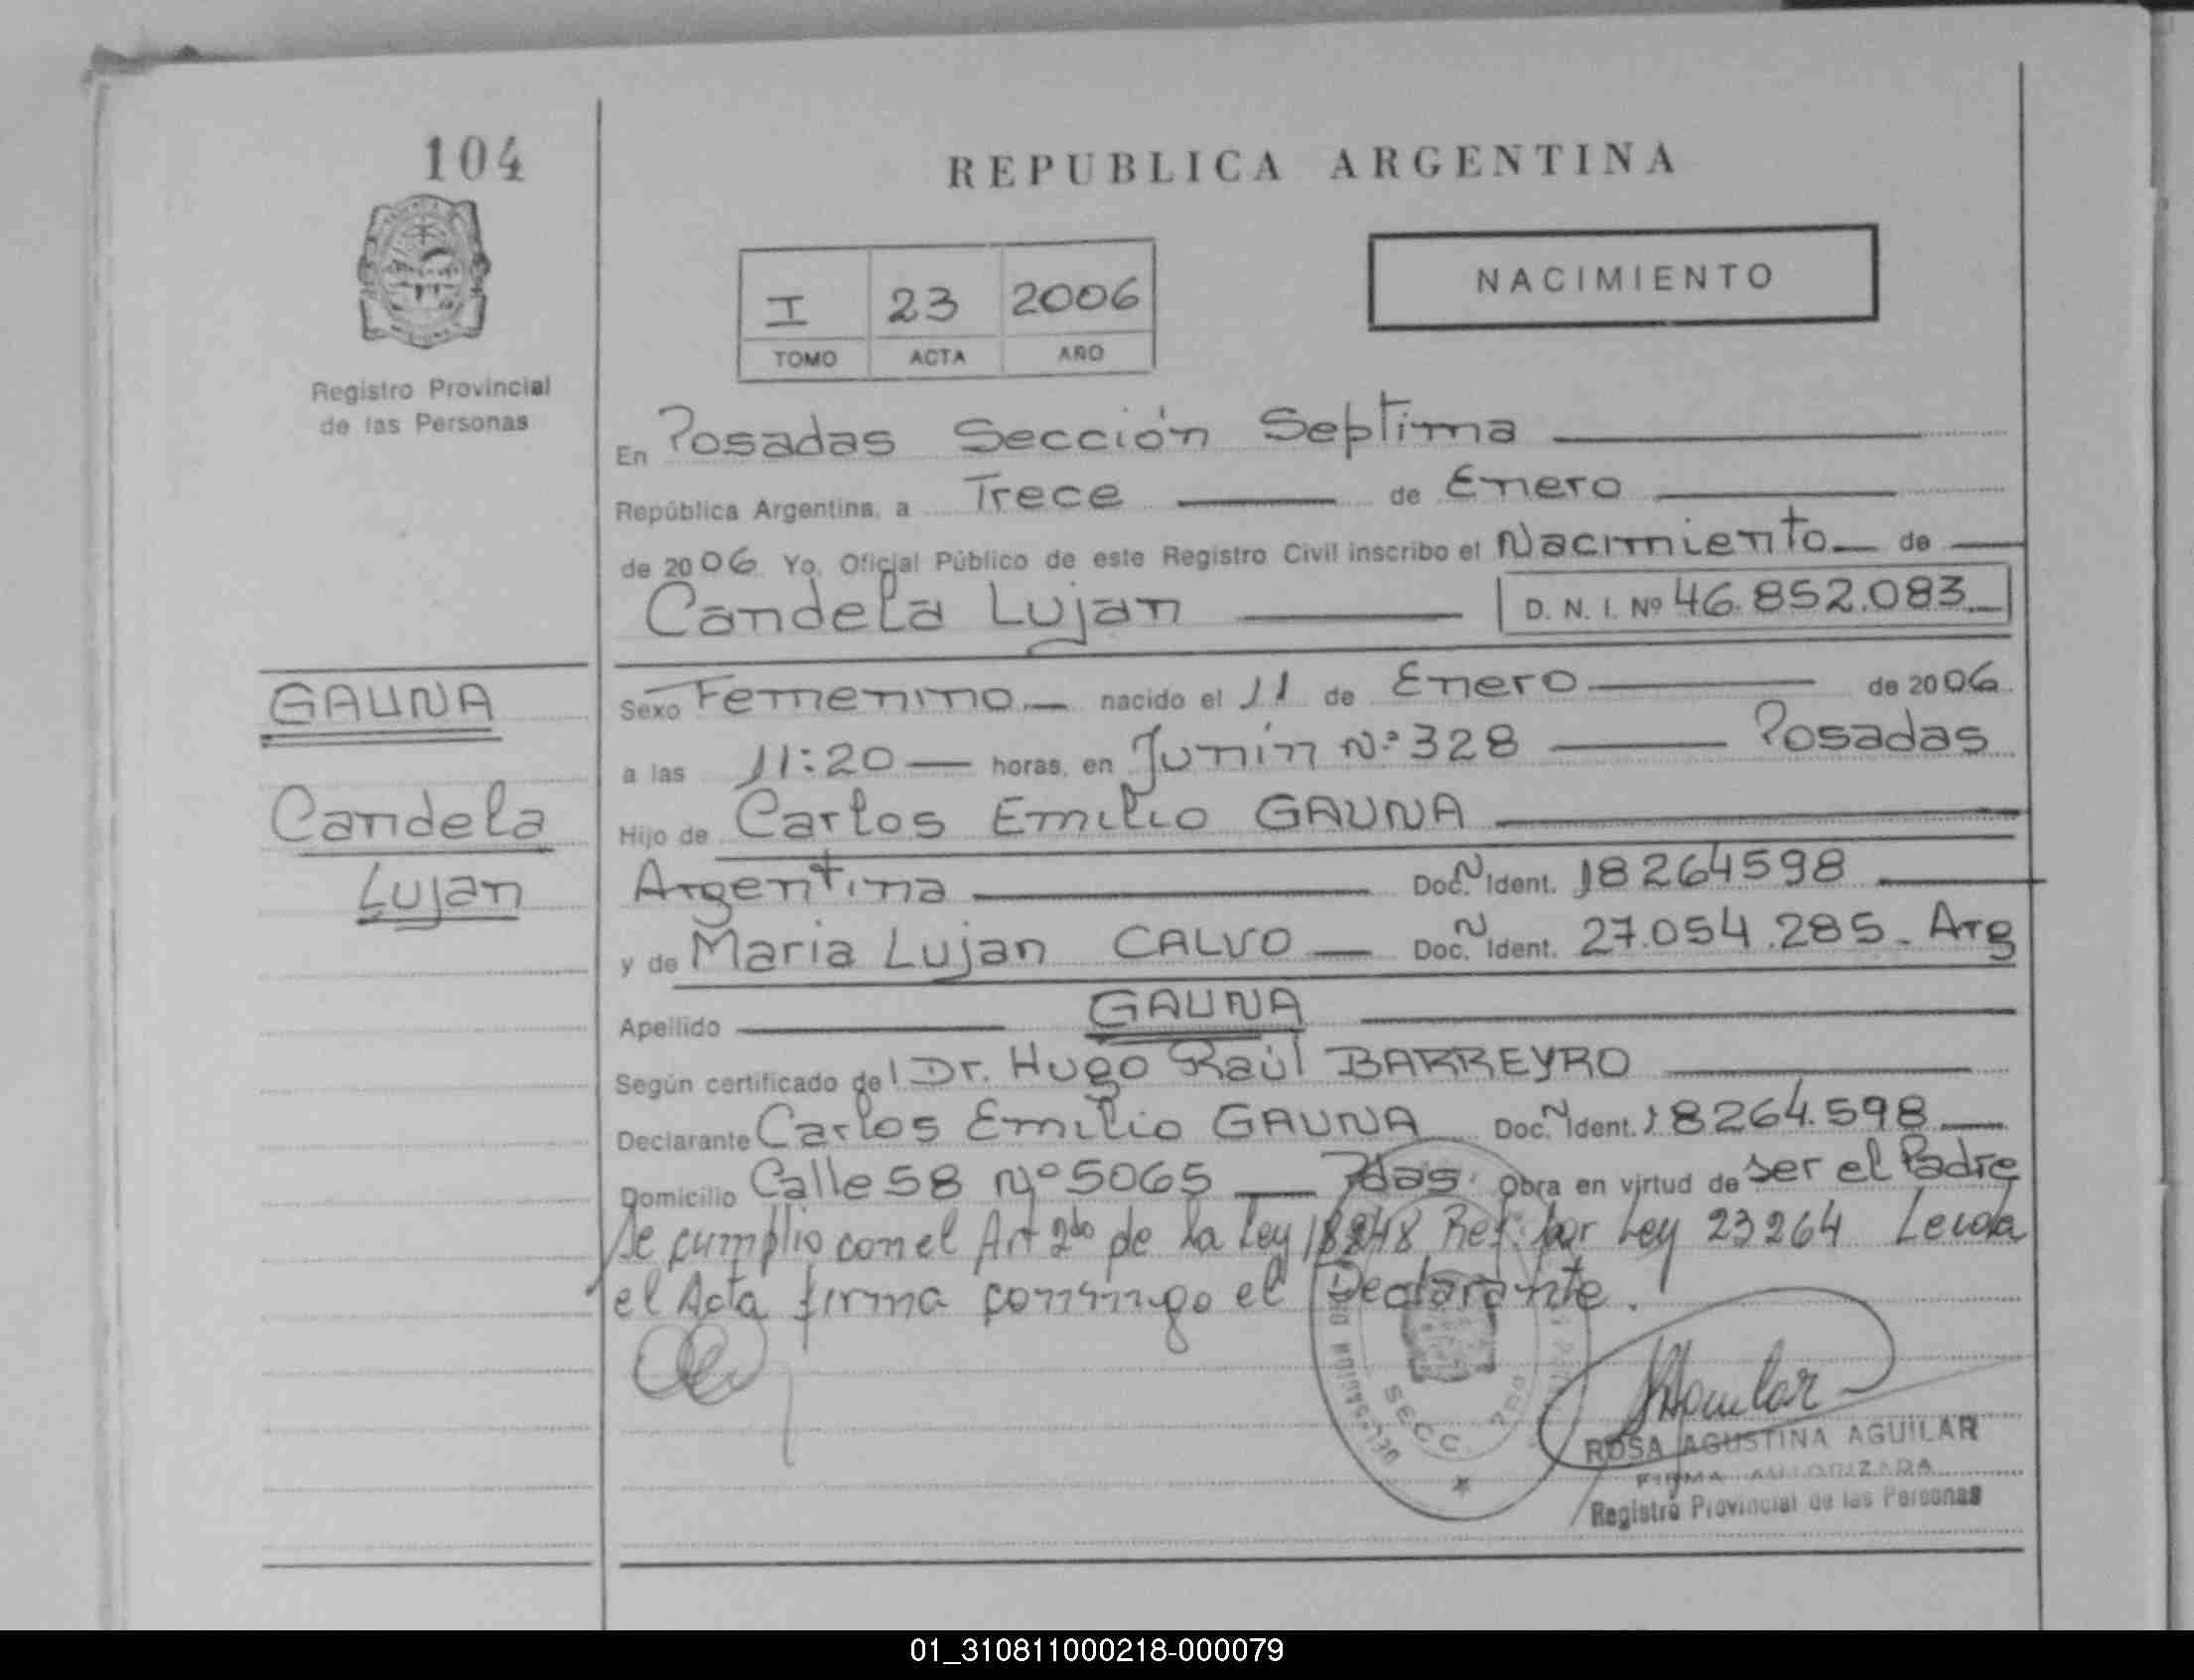 104
REPUBLICA ARGENTINA
I 23 2006
TOMO ACTA AÑO
NACIMIENTO
Registro Provincial
de las Personas
En Posadas Sección Septima
República Argentina, a Trece de Enero
de 2006 Yo, Oficial Público de este Registro Civil inscribo el Nacimiento de
Candela Lujan D. N. I. Nº 46.852.083
GAUNA
Candela
Lujan
Sexo Femenino nacido el 11 de Enero de 2006
a las 11:20 horas, en Junín Nº 328 Posadas
Hijo de Carlos Emilio GAUNA
Argentina Doc. N Ident. 18264598
y de Maria Lujan CALVO Doc. N Ident. 27.054.285. Arg
Apellido GAUNA
Según certificado del Dr. Hugo Raúl BARREYRO
Declarante Carlos Emilio GAUNA Doc. N Ident. 18264.598
Domicilio Calle 58 Nº 5065 Pdas. Obra en virtud de ser el Padre
Se cumplio con el Art 2do de la Ley 18248 Ref. por Ley 23264 Leida
el Acta firma conmigo el Declarante.
SECC.
ROSA AGUSTINA AGUILAR
FIRMA AUTORIZADA
Registro Provincial de las Personas
01_310811000218-000079